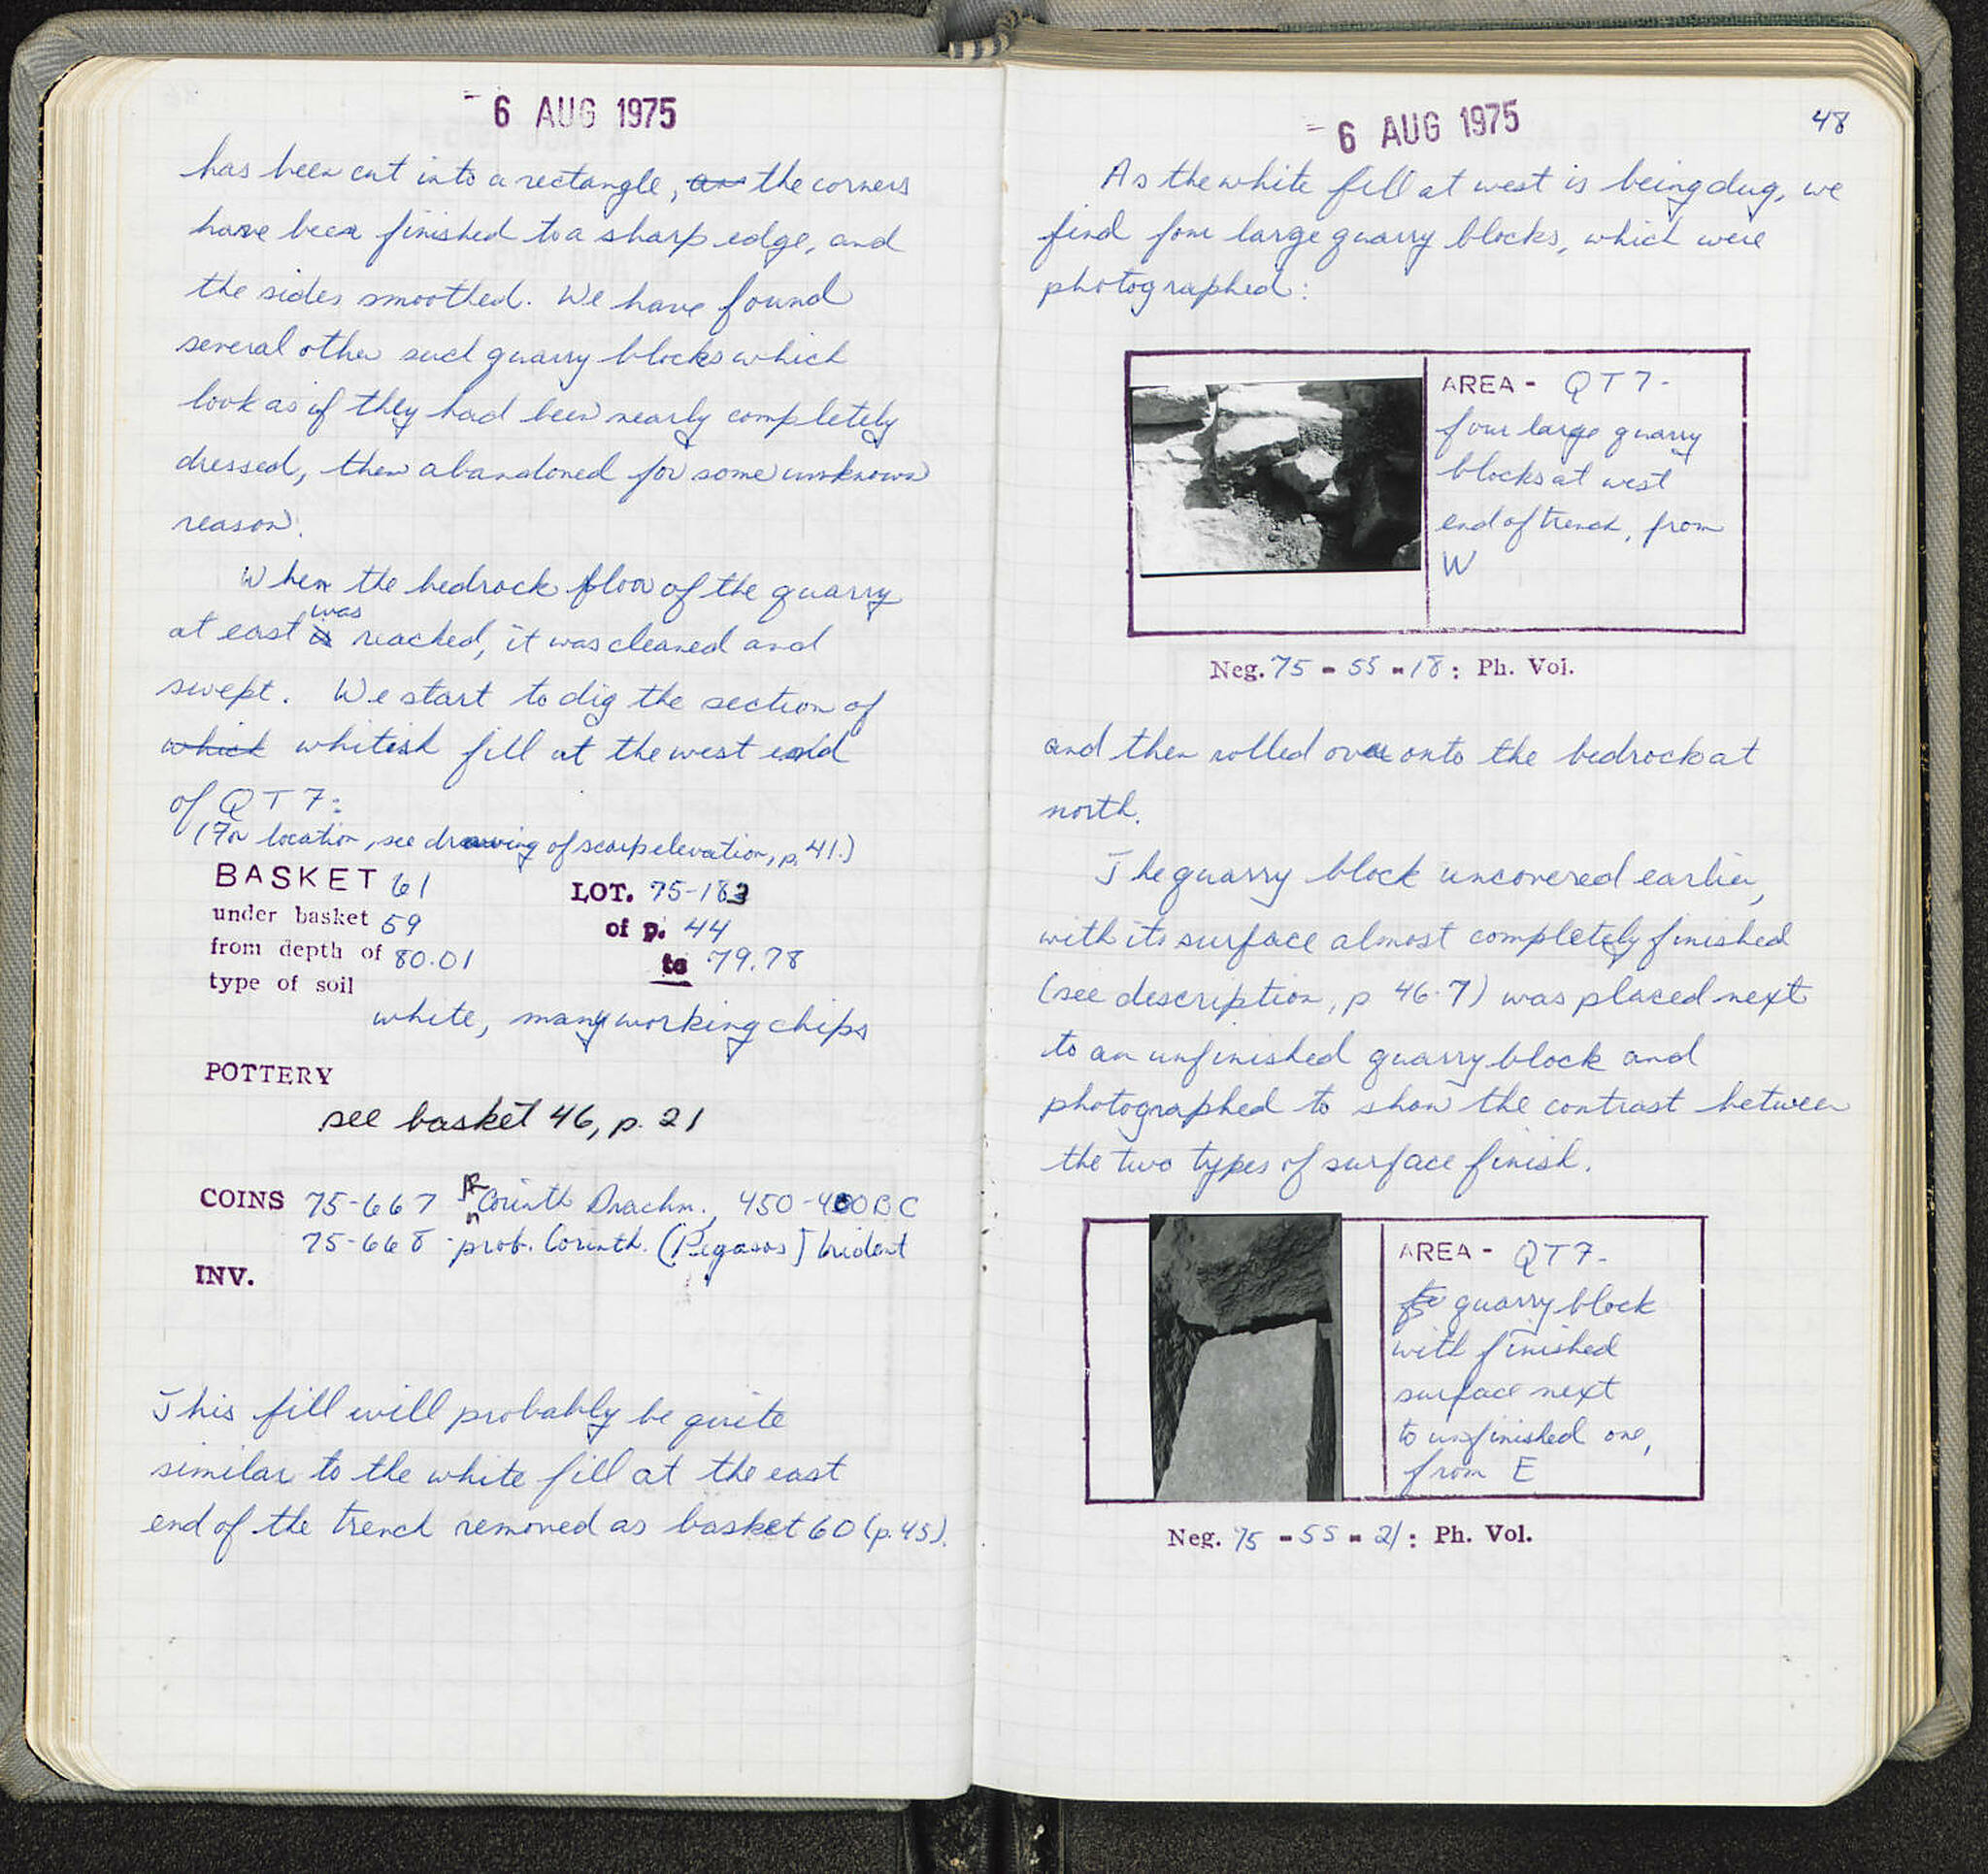 - 6 AUG 1975
has been cut into a rectangle, the corners
have been finished to a sharp edge, and
the sides smoothed. We have found
several other such quarry blocks which
look as if they had been nearly completely
dressed, then abandoned for some unknown
reason.
When the bedrock floor of the quarry
at east was reached, it was cleaned and
swept. We start to dig the section of
which whitish fill at the west end
of QT7:
(For location, see drawing of scarp elevation, p. 41.)
BASKET 61 LOT. 75-183
under basket 59 of p. 44
from depth of 80.01 to 79.78
type of soil
white, many working chips
POTTERY
see basket 46, p. 21
COINS 75-667 Corinth Drachm., 450-400 BC
75-668 - prob. Corinth. (Pegasos] trident
INV.
This fill will probably be quite
similar to the white fill at the east
end of the trench removed as basket 60 (p. 45).
- 6 AUG 1975
48
As the white fill at west is being dug, we
find four large quarry blocks, which were
photographed:
AREA - QT7-
four large quarry
blocks at west
end of trench, from
W
Neg. 75 - 55 - 18 : Ph. Vol.
and then rolled over onto the bedrock at
north.
The quarry block uncovered earlier,
with its surface almost completely finished
(see description, p 46-7) was placed next
to an unfinished quarry block and
photographed to show the contrast between
the two types of surface finish.
AREA - QT7-
quarry block
with finished
surface next
to unfinished one,
from E
Neg. 75 - 55 - 21 : Ph. Vol.